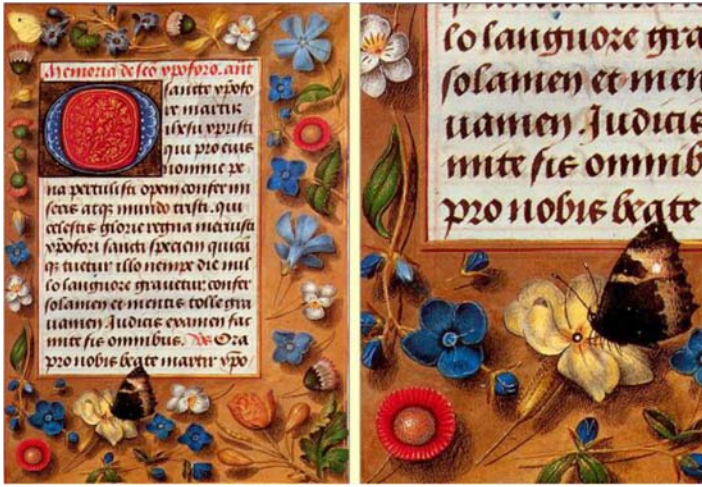 Memoria de sco xpoforo. ant
sancte xpofo
re martir
ihesu xpristi
qui pro eius
nomine pe
na pertulisti opem confer mi
seris atqz mundo tristi. qui
celestis glorie regna meruisti
xpofori sancti speciem quicu
qz tuetur illo nempe die nul
lo languore grauetur. confer
solamen et mentis tolle gra
uamen Judicis examen fac
mite sis omnibus. Vs Ora
pro nobis beate martir xpo
lo languore gra
solamen et men
uamen. Judicis
mite sis omnib
pro nobis beate